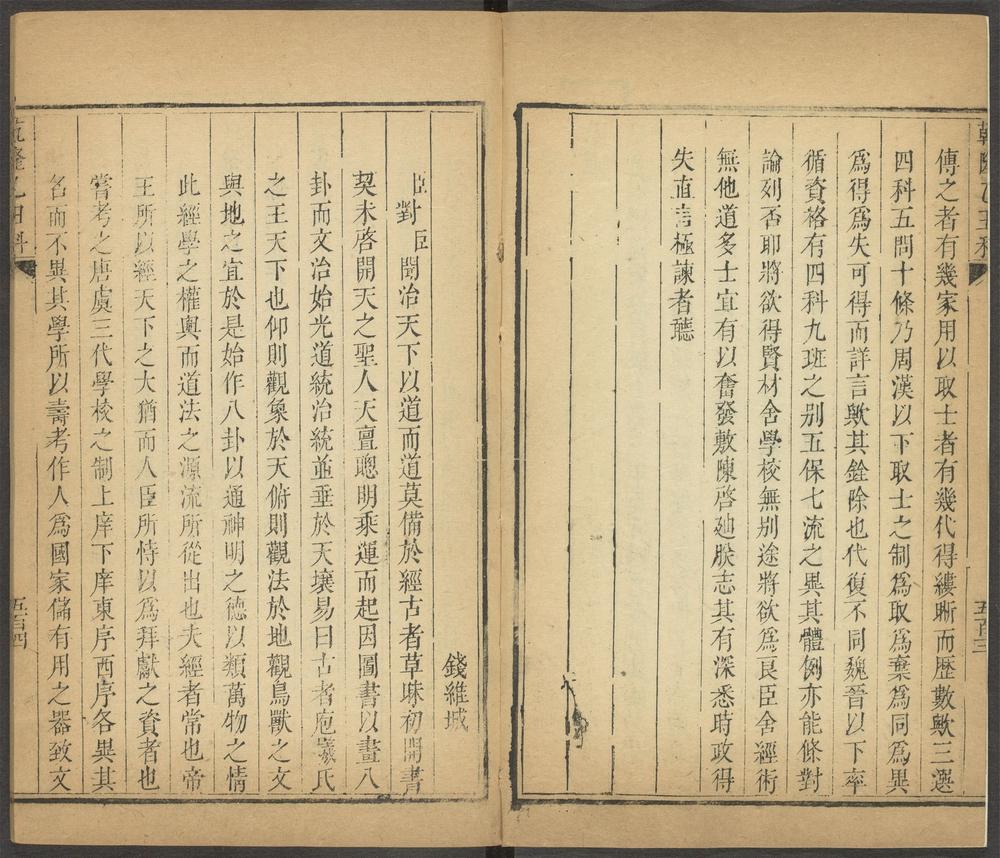 傳之者有幾家用以取士者有幾代得縷晰而歷數歟三選
四科五問十條乃周漢以下取士之制為取為棄為同為異
為得為失可得而詳言歟其銓除也代復不同魏晉以下率
循資格有四科九班之别五保七流之異其體例亦能條對
論列否耶將欲得賢材舍學校無别途將欲為良臣舍經術
無他道多士宜有以奮發敷陳啓廸朕志其有深悉時政得
失直言極諫者聽
乾隆乙丑科
五百三
錢維城
臣對臣聞治天下以道而道莫備於經古者草昧初開書
契未啓開天之聖人天亶聰明乘運而起因圖書以畫八
卦而文治始光道統治統並垂於天壤易曰古者庖羲氏
之王天下也仰則觀象於天俯則觀法於地觀鳥獸之文
與地之宜於是始作八卦以通神明之德以類萬物之情
此經學之權輿而道法之源流所從出也夫經者常也帝
王所以經天下之大猶而人臣所恃以為拜獻之資者也
嘗考之唐虞三代學校之制上庠下庠東序西序各異其
名而不異其學所以壽考作人為國家儲有用之器致文
乾隆乙丑科
五百四